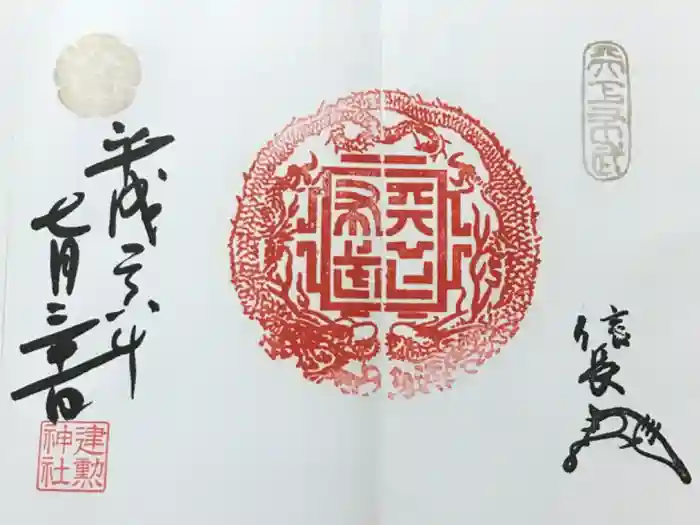 天下布武
天下布武
信長
平成二六年
七月二十日
建勲
神社